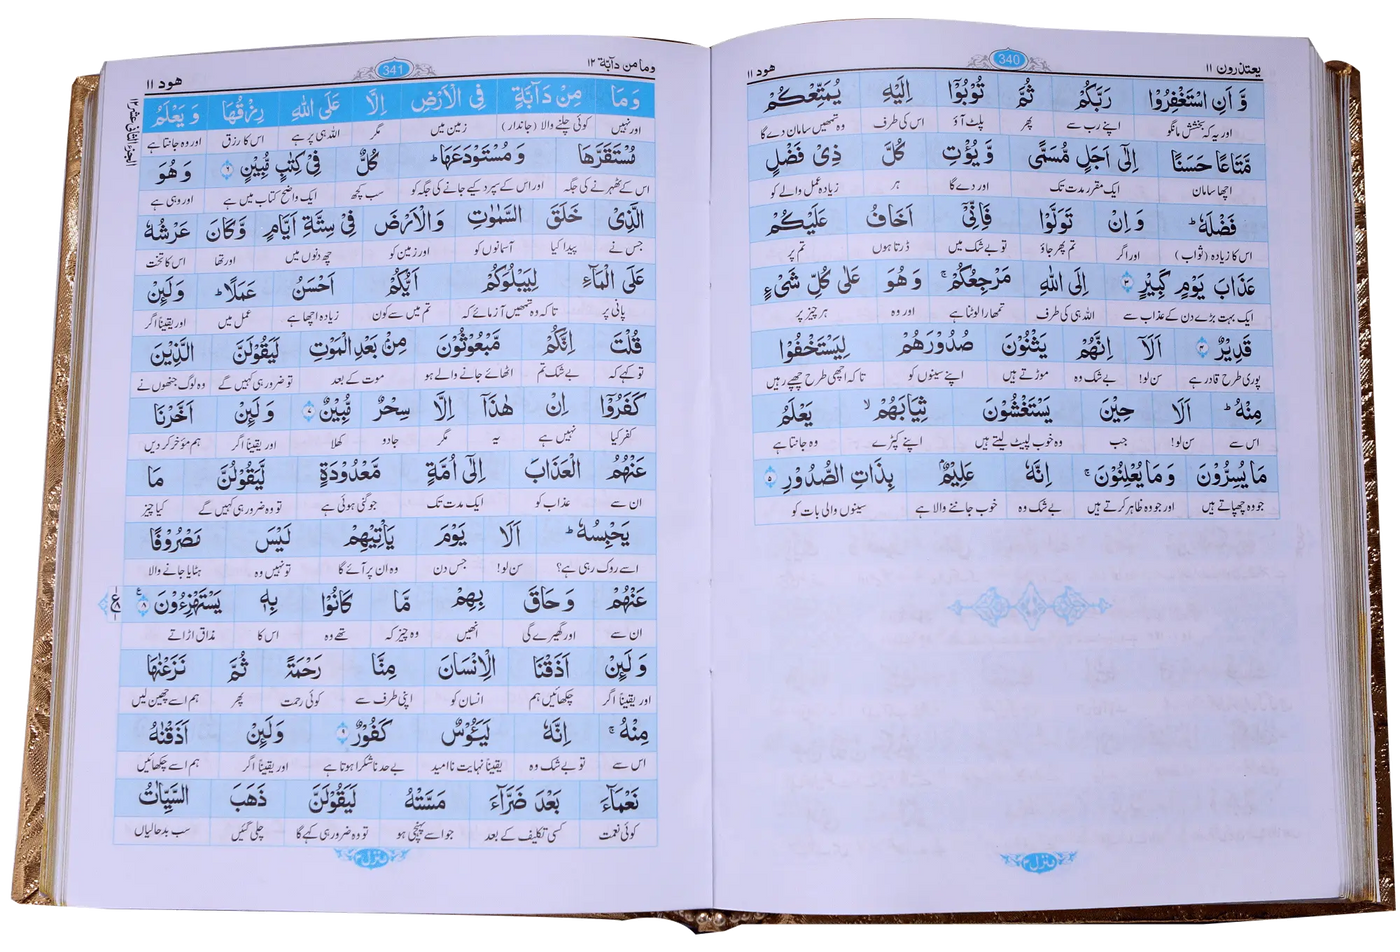 یعتذرون ۱۱
340
ھود ۱۱
وَّ اَنِ اسْتَغْفِرُوْا رَبَّكُمْ ثُمَّ تُوْبُوْٓا اِلَيْهِ يُمَتِّعْكُمْ
اور یہ کہ بخشش مانگو اپنے رب سے پھر پلٹ آؤ اس کی طرف وہ تمھیں سامان دے گا
مَّتَاعًا حَسَنًا اِلٰٓى اَجَلٍ مُّسَمًّى وَّ يُؤْتِ كُلَّ ذِيْ فَضْلٍ
اچھا سامان ایک مقرر مدت تک اور دے گا ہر زیادہ عمل والے کو
فَضْلَهٗ ؕ وَ اِنْ تَوَلَّوْا فَاِنِّيْٓ اَخَافُ عَلَيْكُمْ
اس کا زیادہ (ثواب) اور اگر تم پھر جاؤ تو بے شک میں ڈرتا ہوں تم پر
عَذَابَ يَوْمٍ كَبِيْرٍ ۳ اِلَى اللّٰهِ مَرْجِعُكُمْ ۚ وَ هُوَ عَلٰى كُلِّ شَيْءٍ
ایک بہت بڑے دن کے عذاب سے اللہ ہی کی طرف تمھارا لوٹنا ہے اور وہ ہر چیز پر
قَدِيْرٌ ۴ اَلَآ اِنَّهُمْ يَثْنُوْنَ صُدُوْرَهُمْ لِيَسْتَخْفُوْا
پوری طرح قادر ہے سن لو! بے شک وہ موڑتے ہیں اپنے سینوں کو تا کہ اچھی طرح چھپے رہیں
مِنْهُ ؕ اَلَا حِيْنَ يَسْتَغْشُوْنَ ثِيَابَهُمْ ۙ يَعْلَمُ
اس سے سن لو! جب وہ خوب لپیٹ لیتے ہیں اپنے کپڑے وہ جانتا ہے
مَا يُسِرُّوْنَ وَ مَا يُعْلِنُوْنَ ۚ اِنَّهٗ عَلِيْمٌۢ بِذَاتِ الصُّدُوْرِ ۵
جو وہ چھپاتے ہیں اور جو وہ ظاہر کرتے ہیں بے شک وہ خوب جاننے والا ہے سینوں والی بات کو
منزل ۳
وما من دآبۃ ۱۲
341
ھود ۱۱
وَ مَا مِنْ دَآبَّةٍ فِي الْاَرْضِ اِلَّا عَلَى اللّٰهِ رِزْقُهَا وَ يَعْلَمُ
اور نہیں کوئی چلنے والا (جاندار) زمین میں مگر اللہ ہی پر ہے اس کا رزق اور وہ جانتا ہے
مُسْتَقَرَّهَا وَ مُسْتَوْدَعَهَا ؕ كُلٌّ فِيْ كِتٰبٍ مُّبِيْنٍ ۶ وَ هُوَ
اس کے ٹھہرنے کی جگہ اور اس کے سپرد کیے جانے کی جگہ کو سب کچھ ایک واضح کتاب میں ہے اور وہی ہے
الَّذِيْ خَلَقَ السَّمٰوٰتِ وَ الْاَرْضَ فِيْ سِتَّةِ اَيَّامٍ وَّ كَانَ عَرْشُهٗ
جس نے پیدا کیا آسمانوں کو اور زمین کو چھ دنوں میں اور تھا اس کا تخت
عَلَى الْمَآءِ لِيَبْلُوَكُمْ اَيُّكُمْ اَحْسَنُ عَمَلًا ؕ وَ لَىِٕنْ
پانی پر تا کہ وہ تمھیں آزمائے کہ تم میں سے کون زیادہ اچھا ہے عمل میں اور یقیناً اگر
قُلْتَ اِنَّكُمْ مَّبْعُوْثُوْنَ مِنْۢ بَعْدِ الْمَوْتِ لَيَقُوْلَنَّ الَّذِيْنَ
تو کہے کہ بے شک تم اٹھائے جانے والے ہو موت کے بعد تو ضرور ہی کہیں گے وہ لوگ جنھوں نے
كَفَرُوْٓا اِنْ هٰذَآ اِلَّا سِحْرٌ مُّبِيْنٌ ۷ وَ لَىِٕنْ اَخَّرْنَا
کفر کیا نہیں ہے یہ مگر جادو کھلا اور یقیناً اگر ہم مؤخر کر دیں
عَنْهُمُ الْعَذَابَ اِلٰٓى اُمَّةٍ مَّعْدُوْدَةٍ لَّيَقُوْلُنَّ مَا
ان سے عذاب کو ایک مدت تک جو گنی ہوئی ہے تو وہ ضرور ہی کہیں گے کیا چیز
يَحْبِسُهٗ ؕ اَلَا يَوْمَ يَاْتِيْهِمْ لَيْسَ مَصْرُوْفًا
اسے روک رہی ہے؟ سن لو! جس دن وہ ان پر آئے گا تو نہیں وہ ہٹایا جانے والا
عَنْهُمْ وَ حَاقَ بِهِمْ مَّا كَانُوْا بِهٖ يَسْتَهْزِءُوْنَ ۸
ان سے اور گھیرے گی انھیں وہ چیز کہ تھے وہ اس کا مذاق اڑاتے
وَ لَىِٕنْ اَذَقْنَا الْاِنْسَانَ مِنَّا رَحْمَةً ثُمَّ نَزَعْنٰهَا
اور یقیناً اگر چکھائیں ہم انسان کو اپنی طرف سے کوئی رحمت پھر ہم اسے چھین لیں
مِنْهُ ۚ اِنَّهٗ لَيَـُٔوْسٌ كَفُوْرٌ ۹ وَ لَىِٕنْ اَذَقْنٰهُ
اس سے تو بے شک وہ یقیناً نہایت ناامید بے حد ناشکرا ہوتا ہے اور یقیناً اگر ہم اسے چکھائیں
نَعْمَآءَ بَعْدَ ضَرَّآءَ مَسَّتْهُ لَيَقُوْلَنَّ ذَهَبَ السَّيِّاٰتُ
کوئی نعمت کسی تکلیف کے بعد جو اسے پہنچی ہو تو وہ ضرور ہی کہے گا چلی گئیں سب بدحالیاں
منزل ۳